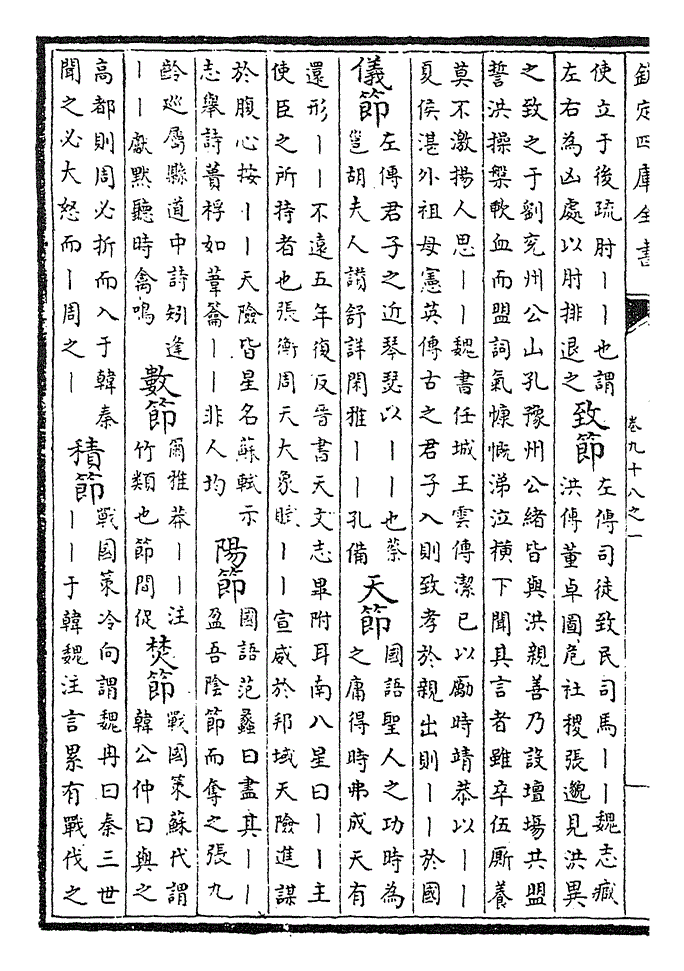 欽定四庫全書
卷九十八之一
使立于後疏肘丨丨也謂
左右為凶處以肘排退之
致節
左傳司徒致民司馬丨丨魏志臧
洪傳董卓圖危社稷張邈見洪異
之致之于劉兖州公山孔豫州公緒皆與洪親善乃設壇場共盟
誓洪操槃歃血而盟詞氣慷慨涕泣橫下聞其言者雖卒伍厮養
莫不激揚人思丨丨魏書任城王雲傳潔已以勵時靖恭以丨丨
夏侯湛外祖母憲英傳古之君子入則致孝於親出則丨丨於國
儀節
左傳君子之近琴瑟以丨丨也蔡
邕胡夫人讃舒詳閑雅丨丨孔備
天節
國語聖人之功時為
之庸得時弗成天有
還形丨丨不遠五年復反晉書天文志畢附耳南八星曰丨丨主
使臣之所持者也張衡周天大象賦丨丨宣威於邦域天險進謀
於腹心按丨丨天險皆星名蘇軾示
志舉詩蕢桴如葦籥丨丨非人均
陽節
國語范蠡曰盡其丨丨
盈吾陰節而奪之張九
齡巡屬縣道中詩矧逢
丨丨獻默聽時禽鳴
數節
爾雅莽丨丨注
竹類也節間促
焚節
戰國策蘇代謂
韓公仲曰與之
高都則周必折而入于韓秦
聞之必大怒而丨周之丨
積節
戰國策冷向謂魏冉曰秦三世
丨丨于韓魏注言累有戰伐之